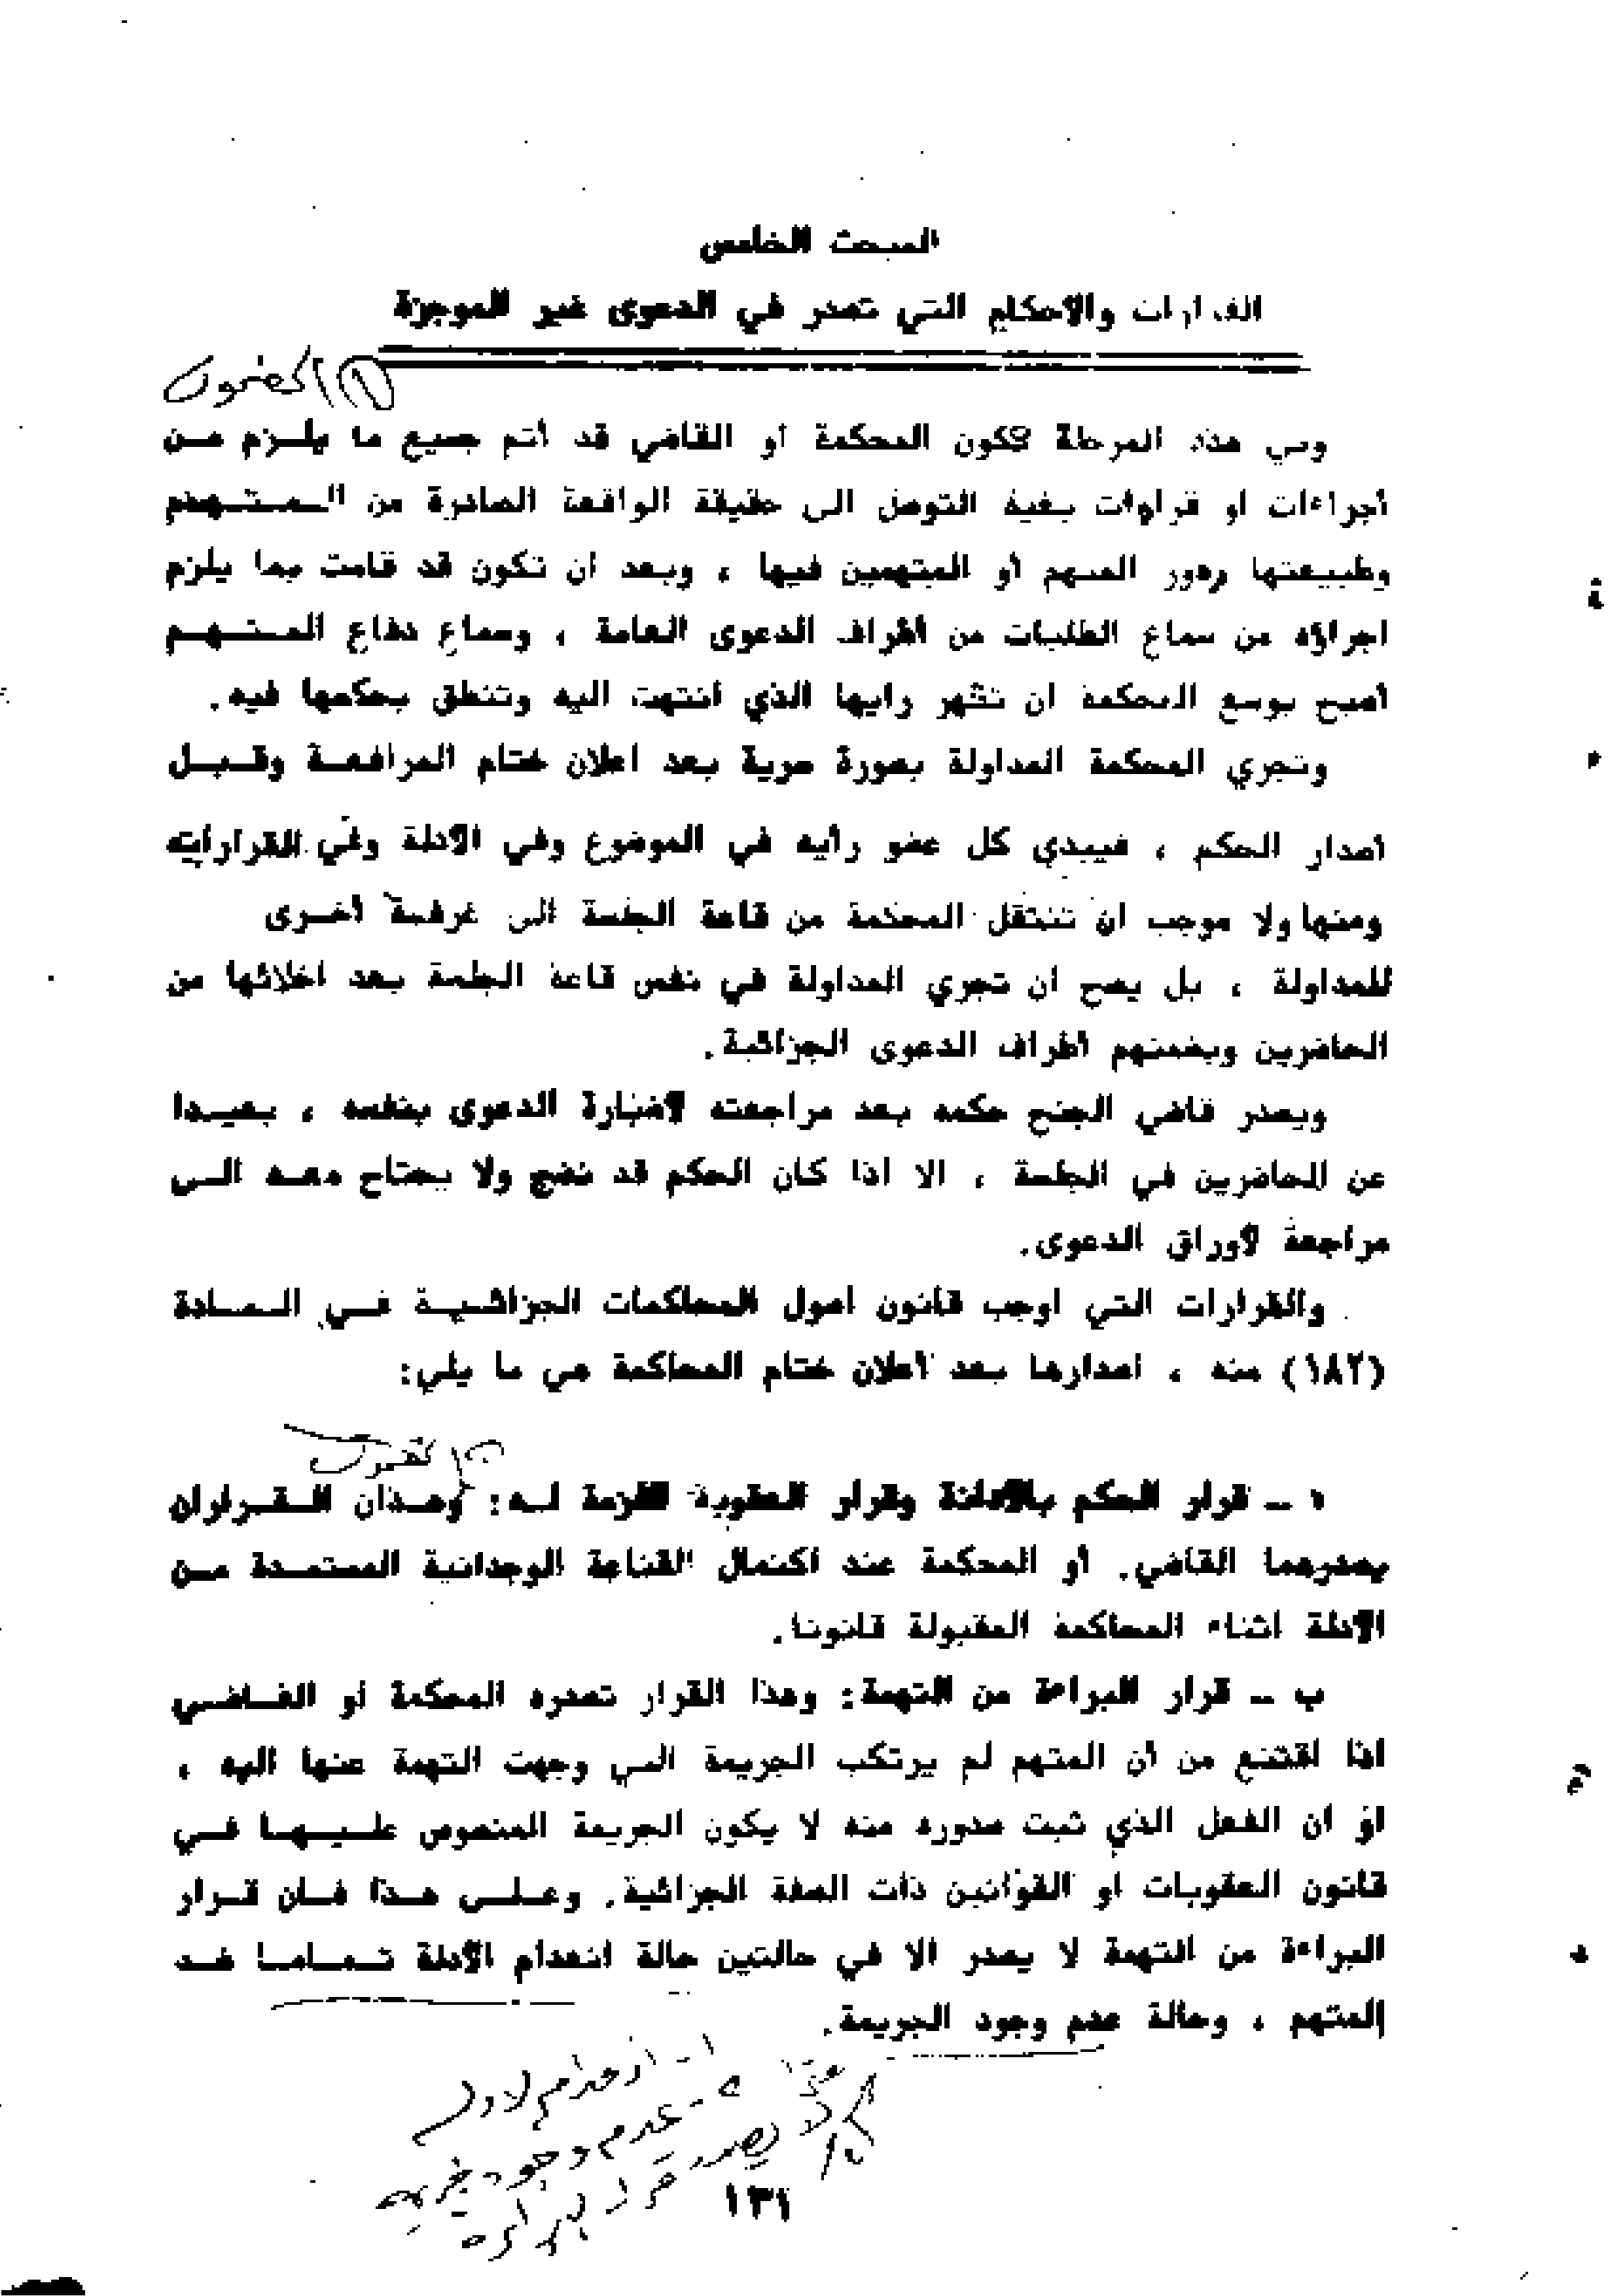 المبحث الخامس
القرارات والاحكام التي تصدر في الدعوى غير الموجزة
وفي هذه المرحلة تكون المحكمة او القاضي قد أتم جميع ما يلـزم مـن
أجراءات او قرارات بغية التوصل الى حقيقة الواقعة الصادرة من الـمـتـهم
وطبيعتها ودور المتهم أو المتهمين فيها ، وبعد ان تكون قد قامت بما يلزم
اجراؤه من سماع الطلبات من أطراف الدعوى العامة ، وسماع دفاع المـتـهـم
أصبح بوسع المحكمة ان تشهر رايها الذي انتهت اليه وتنطق بحكمها فيه.
وتجري المحكمة المداولة بصورة سرية بعد اعلان ختام المرافعـة وقـبـل
أصدار الحكم ، فيبدي كل عضو رأيه في الموضوع وفي الأدلة وفي القرارات
ومنها ولا موجب ان تنتقل المحكمة من قاعة الجلسة الى غرفـة أخـرى
للمداولة ، بل يصح ان تجري المداولة في نفس قاعة الجلسة بعد اخلائها من
الحاضرين وبضمنهم أطراف الدعوى الجزائية.
ويصدر قاضي الجنح حكمه بعد مراجعته لاضبارة الدعوى بنفسه ، بـعيـدا
عن الحاضرين في الجلسة ، الا اذا كان الحكم قد نضج ولا يحتاج معـه الـى
مراجعة لأوراق الدعوى.
والقرارات التي اوجب قانون اصول المحاكمات الجزائـيـة فـي الـمـادة
(١٨٢) منه ، اصدارها بعد أعلان ختام المحاكمة هي ما يلي:
١ ـ قرار الحكم بالادانة وقرار العقوبة اللازمة لـه: وهـذان الـقـراران
يصدرهما القاضي. أو المحكمة عند اكتمال القناعة الوجدانية المستمـدة مـن
الأدلة اثناء المحاكمة المقبولة قانونا.
ب ـ قرار البراءة من التهمة: وهذا القرار تصدره المحكمة أو القـاضـي
اذا اقتنع من أن المتهم لم يرتكب الجريمة التي وجهت التهمة عنها اليه ،
او ان الفعل الذي ثبت صدوره منه لا يكون الجريمة المنصوص عـلـيـهـا فـي
قانون العقوبات او القوانين ذات الصفة الجزائية. وعـلـى هـذا فـان قـرار
البراءة من التهمة لا يصدر الا في حالتين حالة انعدام الأدلة تـمـامـا ضـد
المتهم ، وحالة عدم وجود الجريمة.
١ - انعدام الادلة
٢ - عدم وجود جريمة
لا يصدر قرار البراءة
١٣١